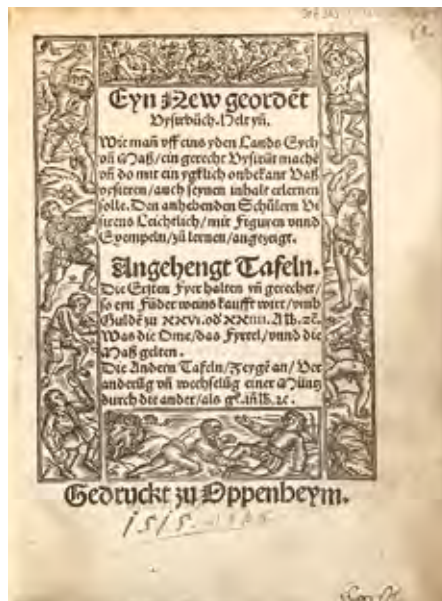 Eyn New geordēt
Vysirbůch. Helt yñ.
Wie mañ vff eins yden Lands Eych
vñ Maß/ein gerecht Vysirůt mache
vñ do mit ein ygklich onbekant Vaß
vysieren/auch seynen inhalt erlernen
solle. Den anhebenden Schůlern Vi
sirens Leichtlich/mit Figuren vnnd
Exempeln/zů lernen/angezeygt.
Angehengt Tafeln.
Die Ersten Fyer halten yñ gerechet/
so eyn Fůder weins kaufft wirt/vmb
Guldē zu XXVI. od' XXIIII. Alb. ꝛc.
Was die Ome/das Fyrtel/vnnd die
Maß gelten.
Die Andern Tafeln/Zeygē an/Ver
anderūg vñ wechselūg einer Müntz
durch die ander/als
Gedruckt zu Oppenheym.
1515.